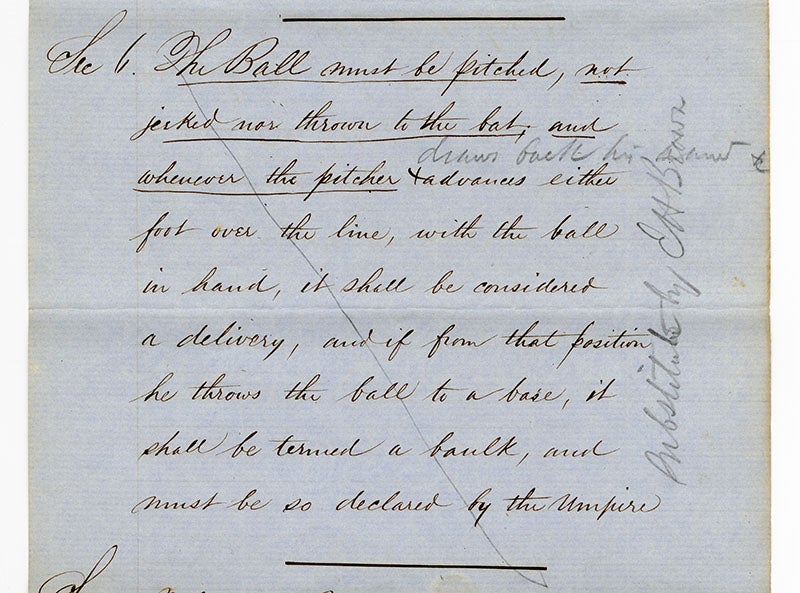 Sec 6. The Ball must be pitched, not
jerked nor thrown to the bat; and
draws back his hand &
whenever the pitcher x advances either
foot over the line, with the ball
in hand, it shall be considered
a delivery, and if from that position
he throws the ball to a base, it
shall be termed a baulk, and
must be so declared by the Umpire
Substitute by E H Brown